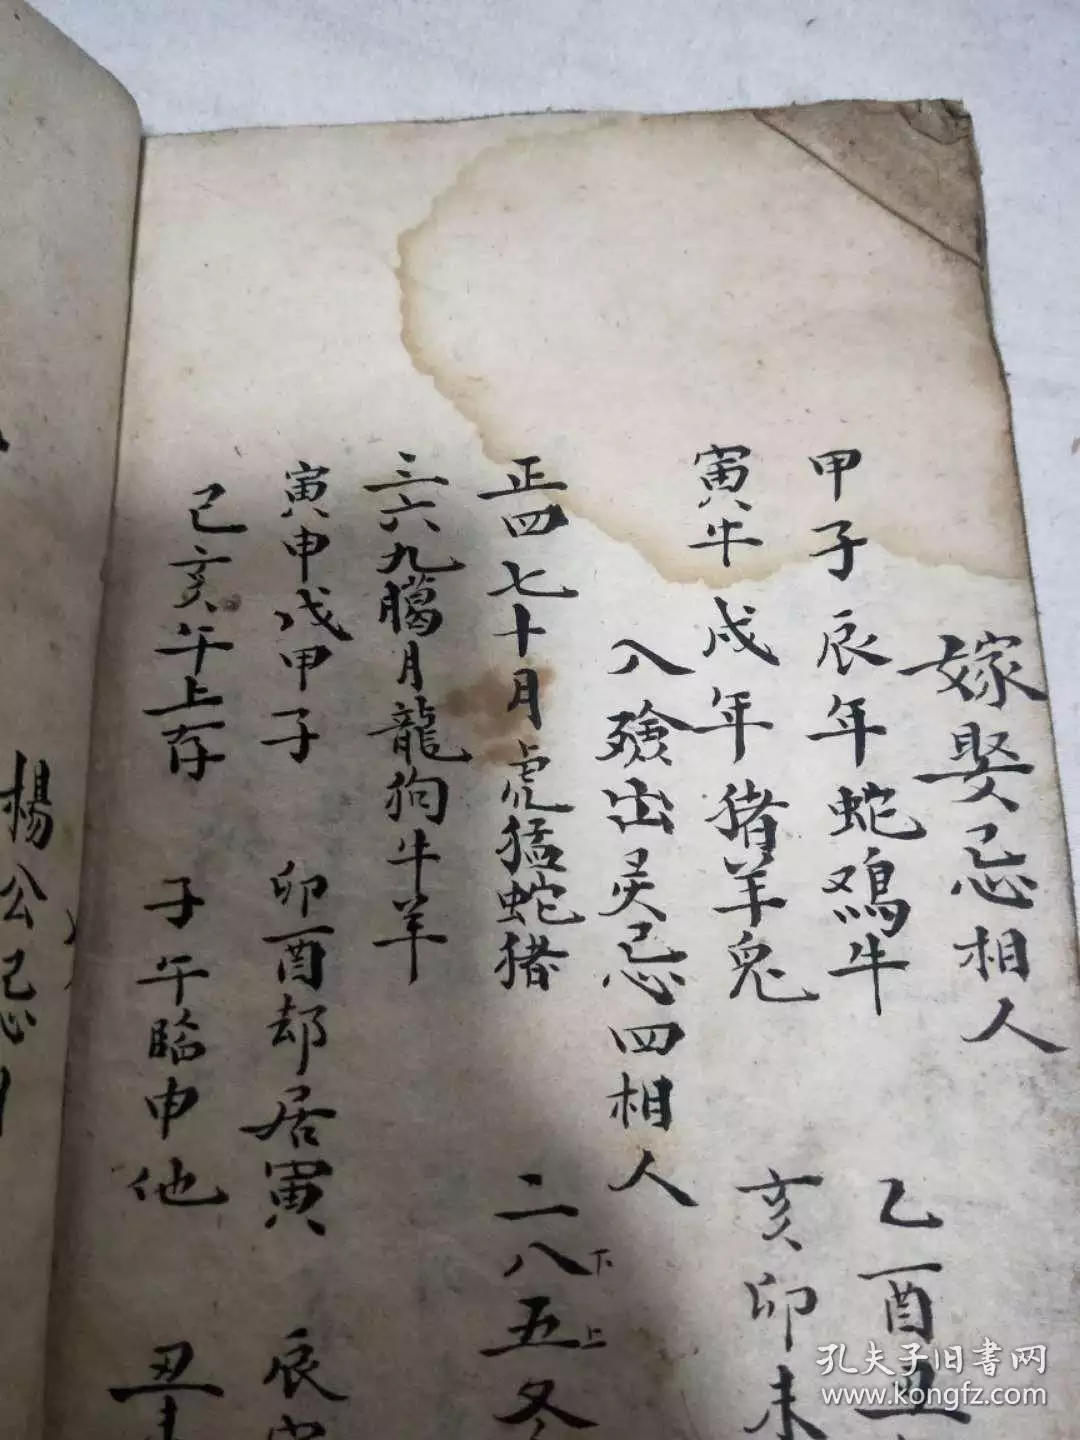 嫁娶忌相人
甲子辰年蛇鳮牛 乙酉丑
寅午戍年猪羊兔 亥卯未
入殮出灵忌四相人
正四七十月虎猛蛇猪 二八五冬
下上
三六九臈月龍狗牛羊
寅申戍甲子 卯酉却居寅 辰
己亥午上存 子午臨申他 丑未
楊公忌日
孔夫子旧書网
www.kongfz.com